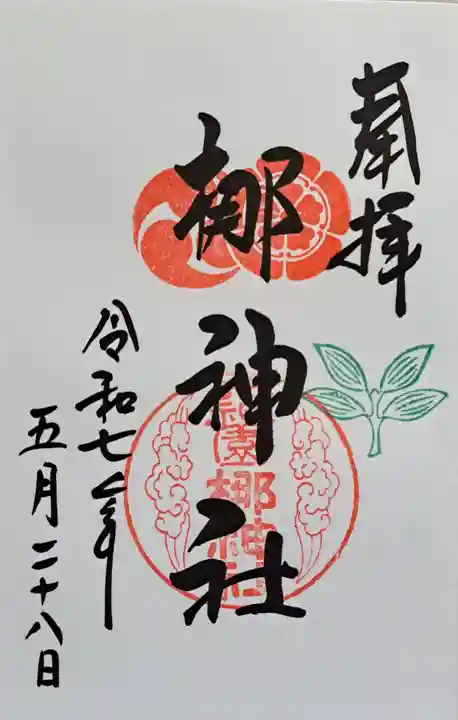 奉拝
梛神社
祇園梛神社
令和七年
五月二十八日